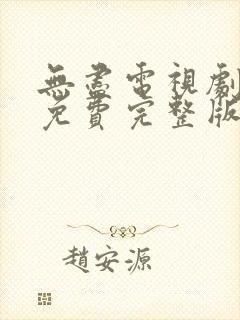 無盡電視劇
免費完整版
趙安源